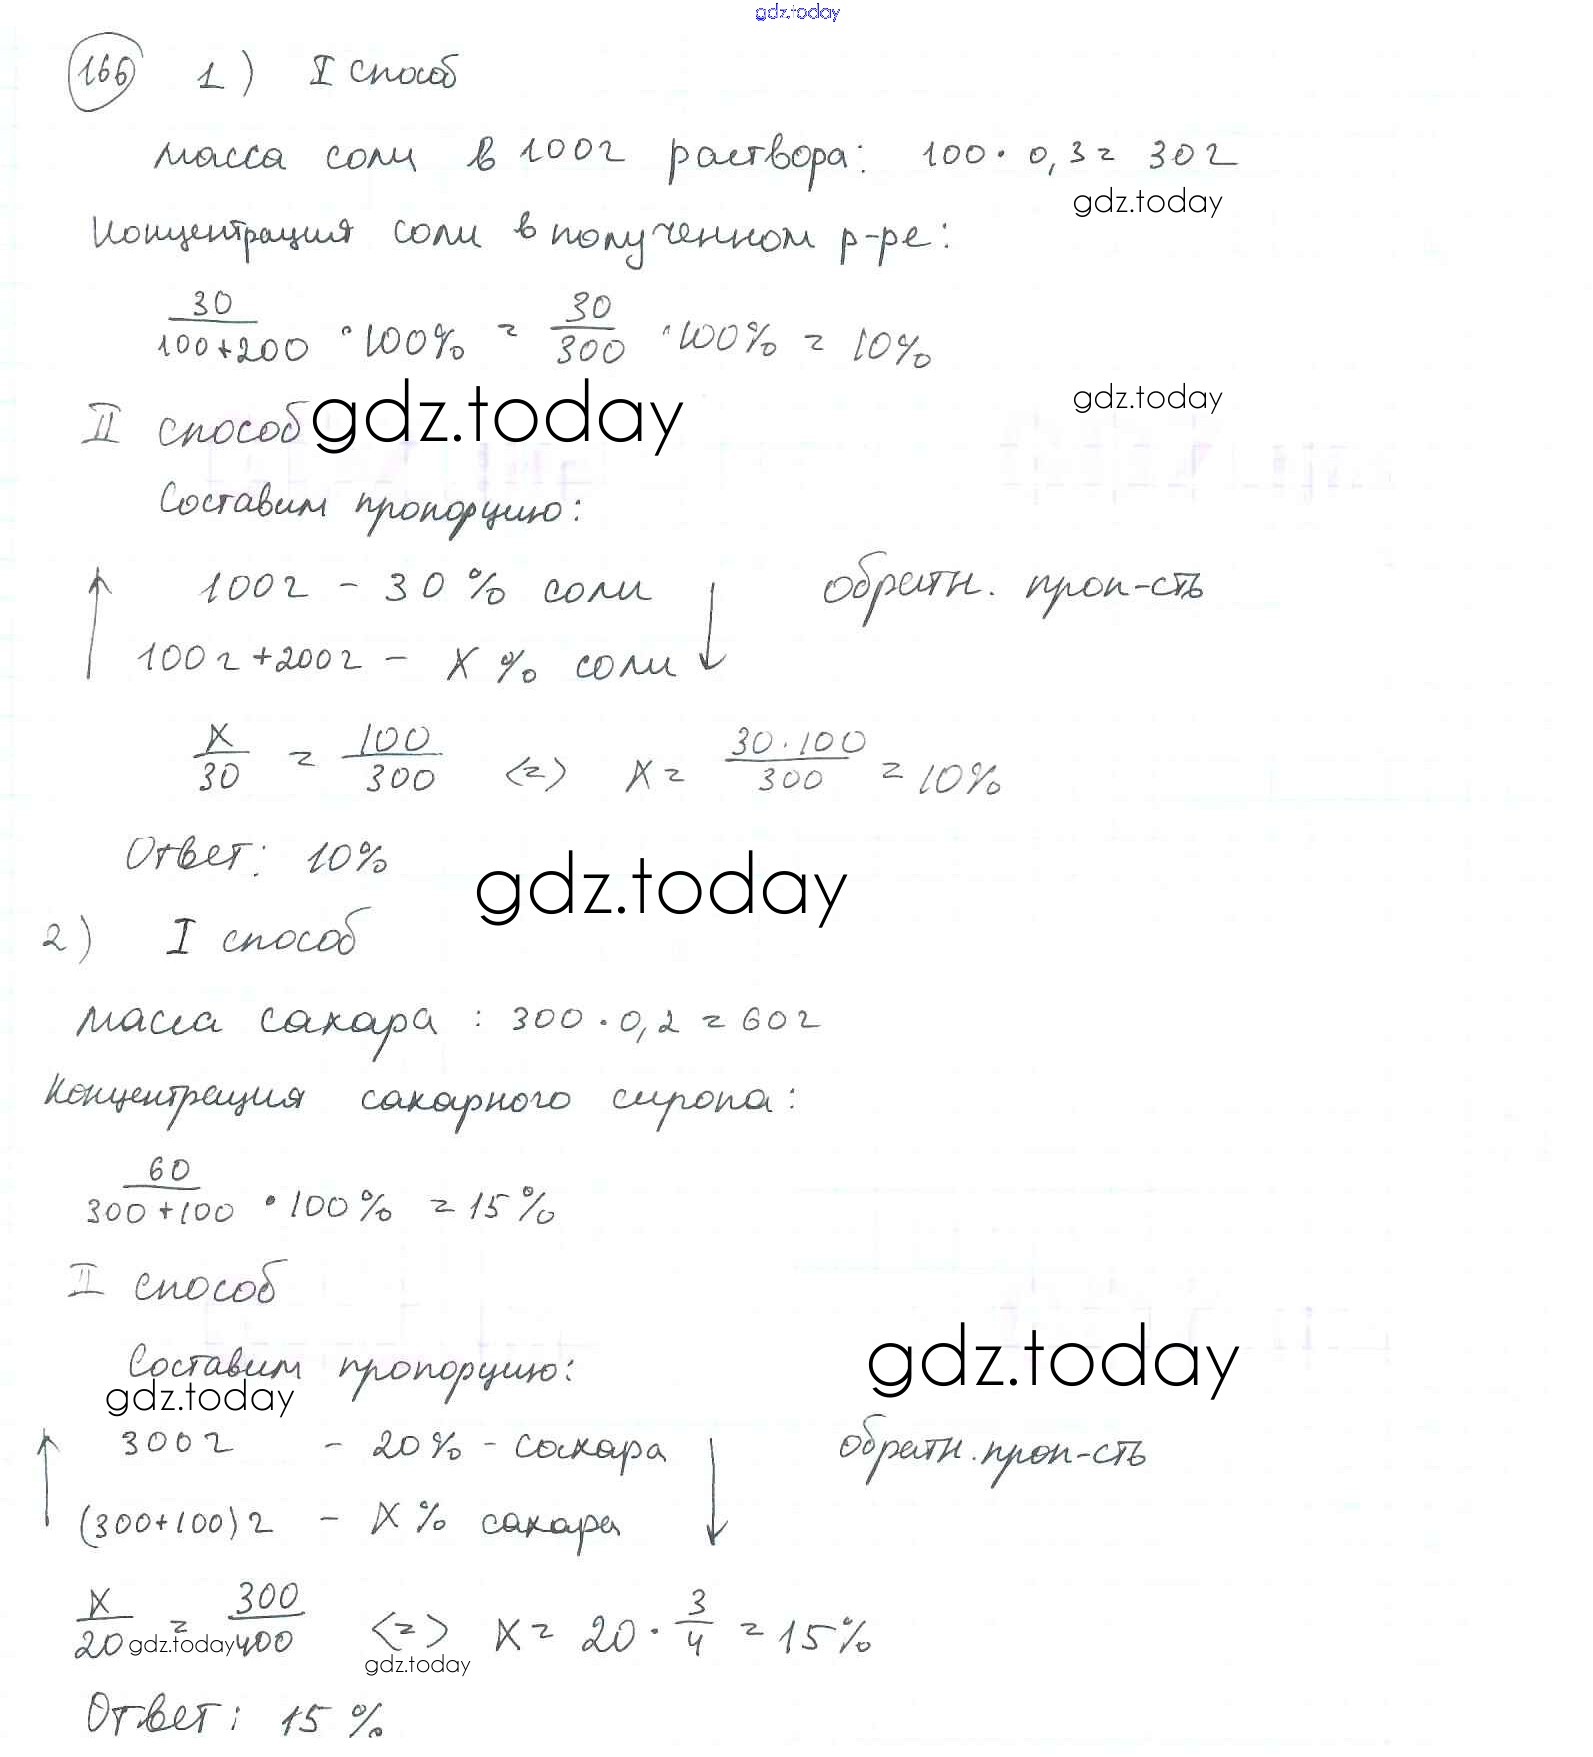 gdz.today
166 1) I способ
масса соли в 100г раствора: 100 · 0,3 = 30г
gdz.today
Концентрация соли в полученном р-ре:
30/(100+200) · 100% = 30/300 · 100% = 10%
gdz.today
II способ
gdz.today
Составим пропорцию:
100г - 30% соли обратн. проп-сть
100г+200г - x% соли
x/30 = 100/300 <=> x = (30·100)/300 = 10%
Ответ: 10%
gdz.today
2) I способ
масса сахара : 300 · 0,2 = 60г
Концентрация сахарного сиропа:
60/(300+100) · 100% = 15%
II способ
gdz.today
Составим пропорцию:
gdz.today
300г - 20% - сахара обратн. проп-сть
(300+100)г - x% сахара
x/20 = 300/400 <=> x = 20 · 3/4 = 15%
gdz.today
gdz.today
Ответ: 15%